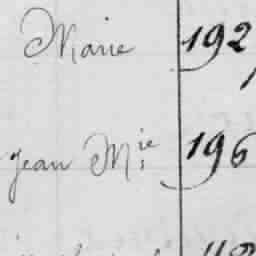 Marie 192
Jean Mie 196